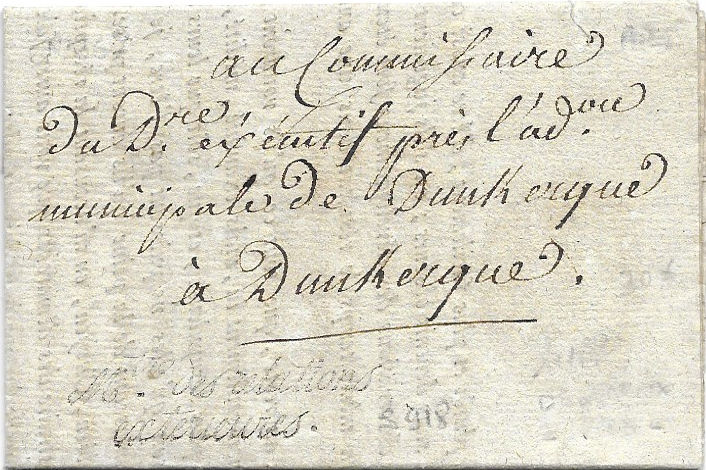 au Commissaire
du D.re exécutif près l'ad.on
municipale de Dunkerque
à Dunkerque.
M.re Des relations
exterieures.
S918